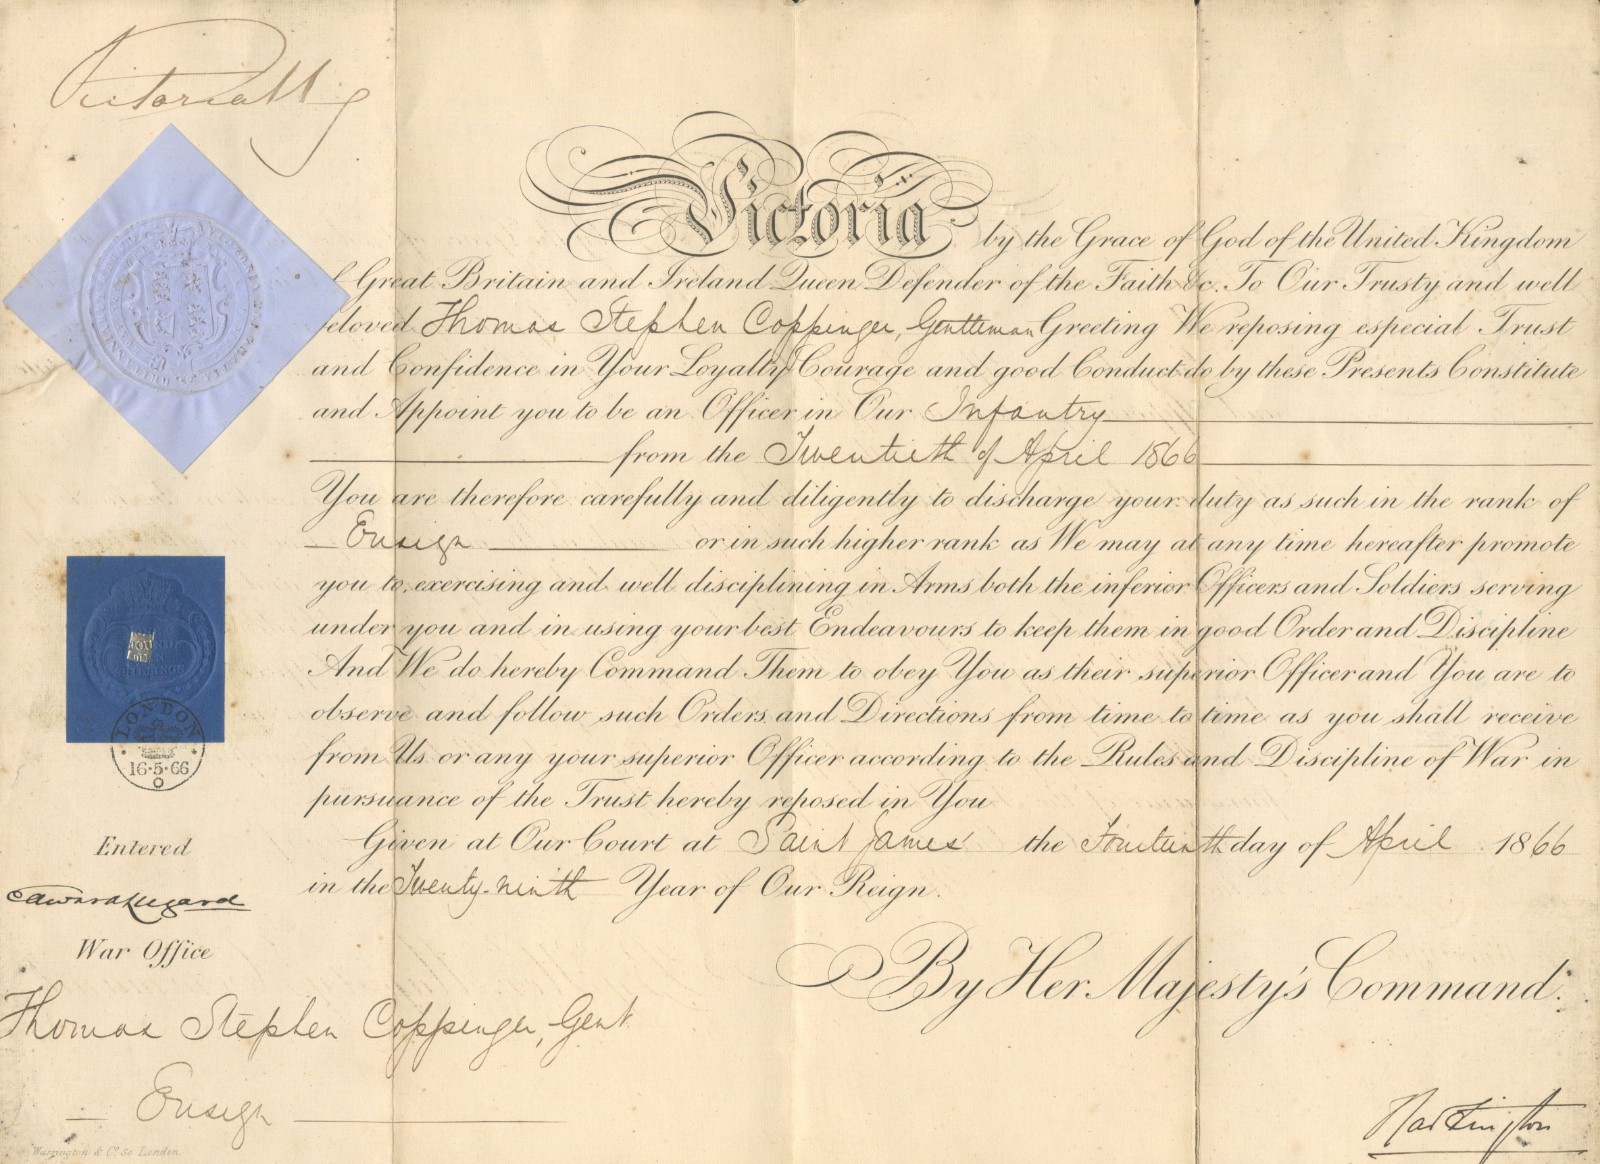 Victoria R
Victoria by the Grace of God of the United Kingdom
of Great Britain and Ireland Queen Defender of the Faith &c. To Our Trusty and well
beloved Thomas Stephen Coppinger, Gentleman Greeting We reposing especial Trust
and Confidence in Your Loyalty Courage and good Conduct do by these Presents Constitute
and Appoint you to be an Officer in Our Infantry
from the Twentieth of April 1866
You are therefore carefully and diligently to discharge your duty as such in the rank of
Ensign or in such higher rank as We may at any time hereafter promote
you to, exercising and well disciplining in Arms both the inferior Officers and Soldiers serving
under you and in using your best Endeavours to keep them in good Order and Discipline
And We do hereby Command Them to obey You as their superior Officer and You are to
observe and follow such Orders and Directions from time to time as you shall receive
from Us or any your superior Officer according to the Rules and Discipline of War in
pursuance of the Trust hereby reposed in You
Given at Our Court at Saint James' the Fourteenth day of April 1866
in the Twenty-ninth Year of Our Reign.
By Her Majesty's Command.
Hartington
POUND
SHILLINGS
LONDON
16·5·66
O
Entered
Edward Lugard
War Office
Thomas Stephen Coppinger, Gent
Ensign
Warrington & Co. Sc London.